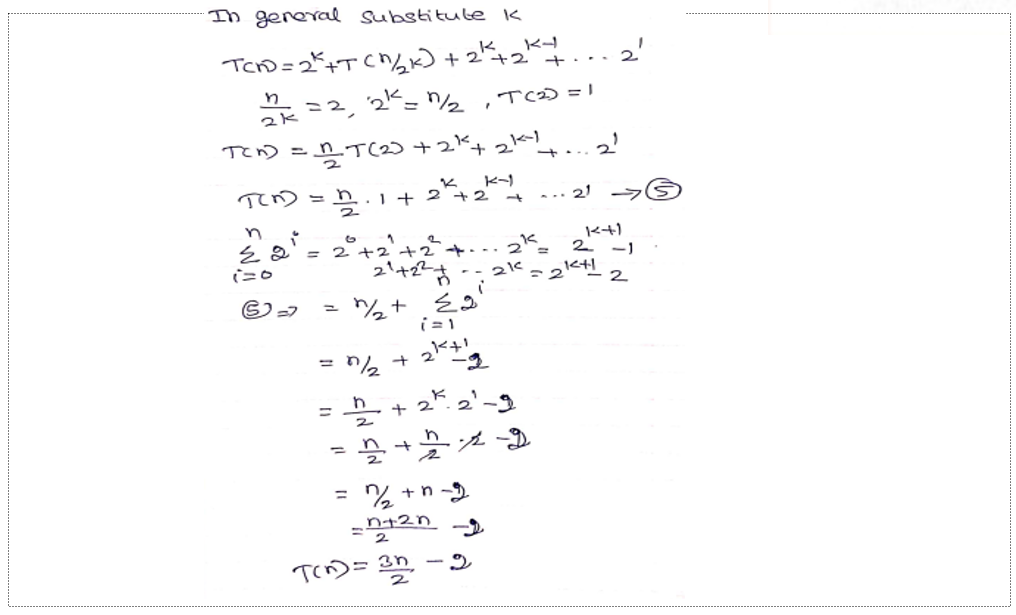 In general substitute k
T(n) = 2^k + T(n/2k) + 2^k + 2^(k-1) + ... 2^1
n/2k = 2, 2^k = n/2, T(2) = 1
T(n) = n/2 T(2) + 2^k + 2^(k-1) + ... 2^1
T(n) = n/2 . 1 + 2^k + 2^(k-1) + ... 2^1 → ⑤
n Σ i=0 2^i = 2^0 + 2^1 + 2^2 + ... 2^k = 2^(k+1) - 1
2^1 + 2^2 + ... 2^k = 2^(k+1) - 2
⑤ ⇒ = n/2 + n Σ i=1 2^i
= n/2 + 2^(k+1) - 2
= n/2 + 2^k . 2^1 - 2
= n/2 + n/2 . 2 - 2
= n/2 + n - 2
= n+2n/2 - 2
T(n) = 3n/2 - 2